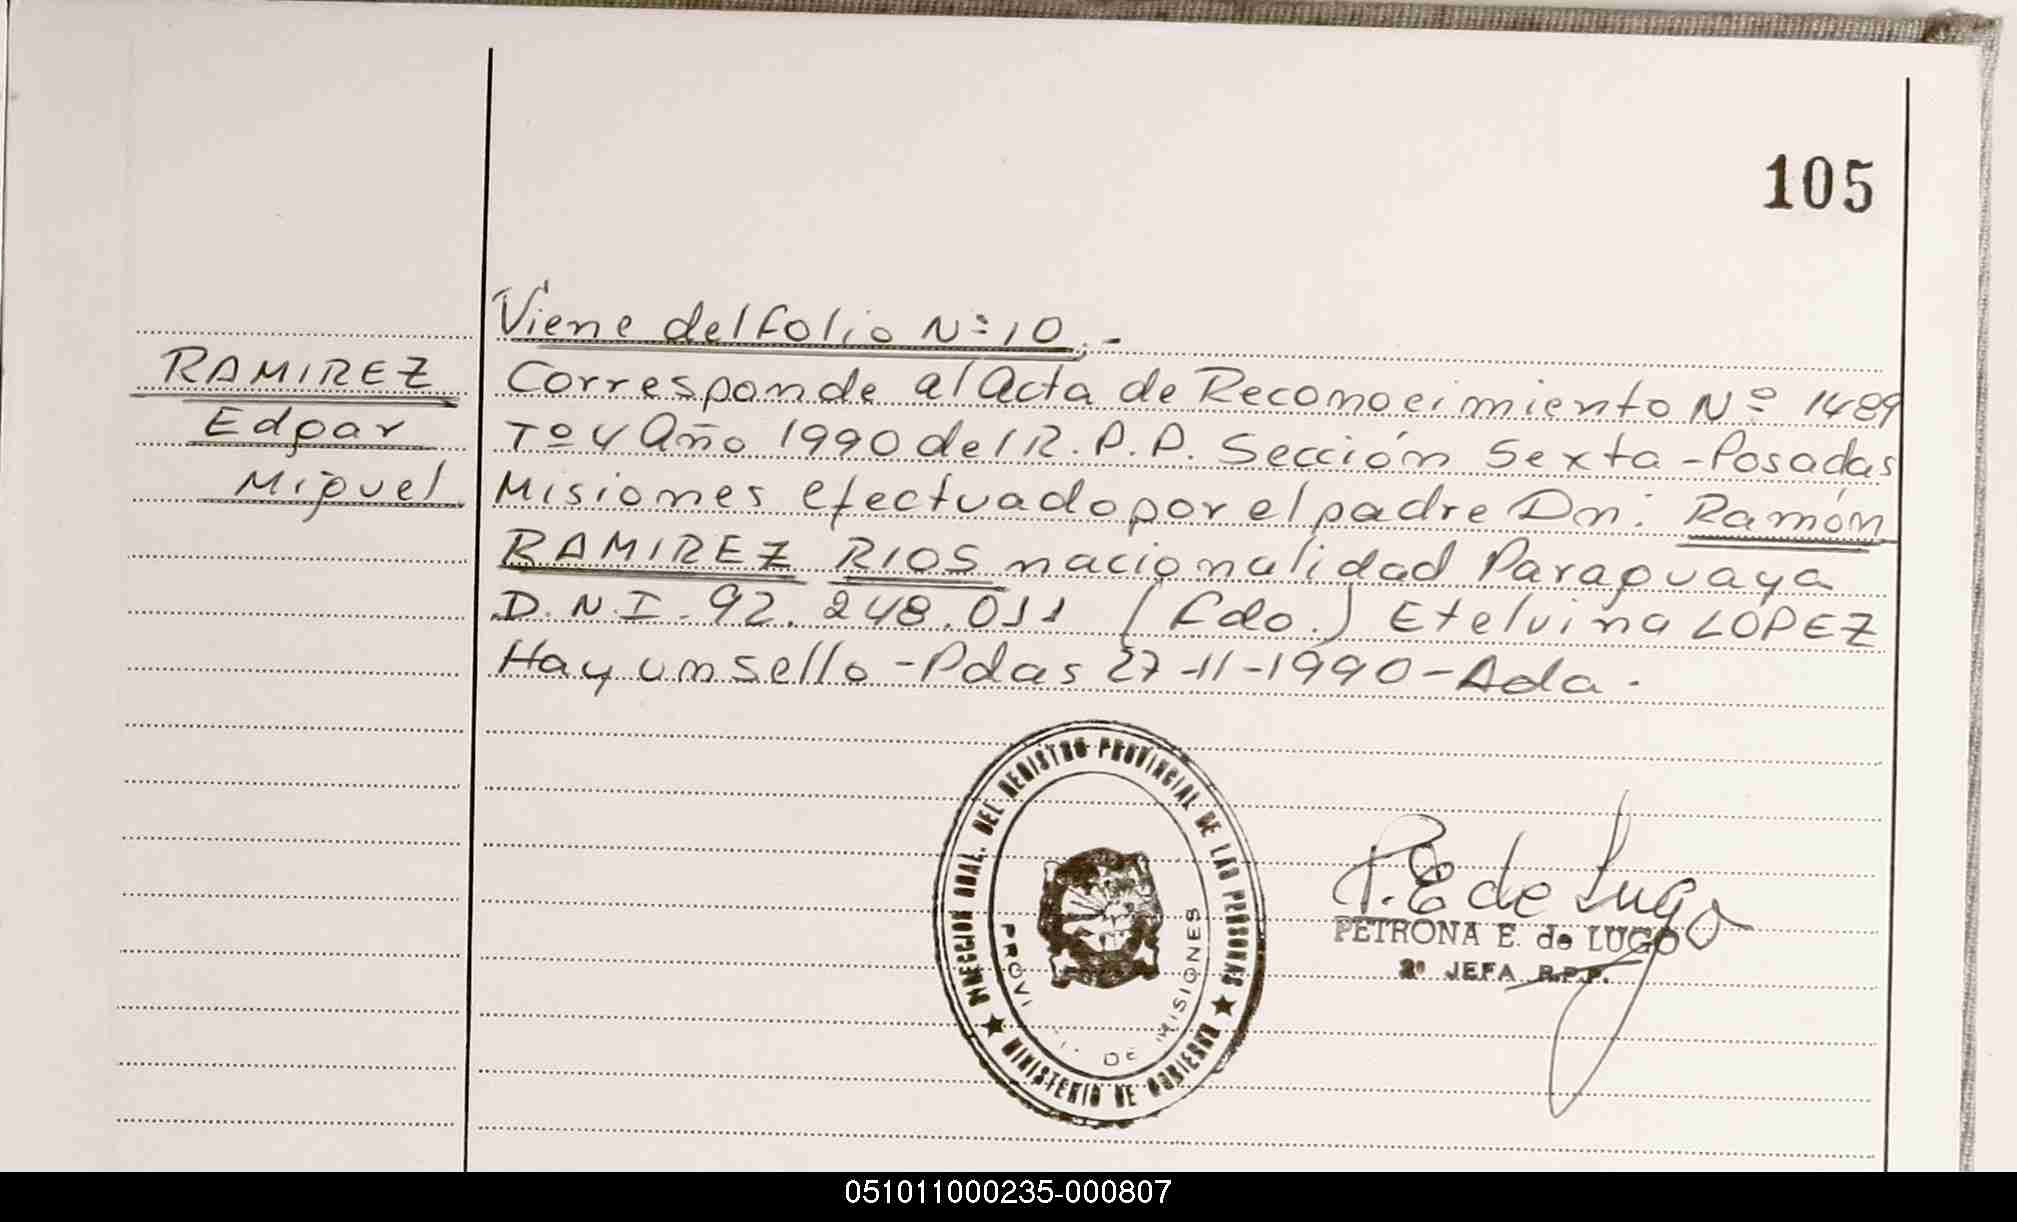 105
Viene del folio Nº 10.-
RAMIREZ
Edgar
Miguel
Corresponde al Acta de Reconocimiento Nº 1489
Tº 4 Año 1990 del R.P.P. Sección Sexta - Posadas
Misiones efectuado por el padre Dn: Ramón
RAMIREZ RIOS nacionalidad Paraguaya
D.N.I - 92.248.011 (Fdo.) Etelvina LOPEZ
Hay un sello - Pdas 27-11-1990 - Ada.
DIRECCION GRAL. DEL REGISTRO PROVINCIAL DE LAS PERSONAS
MINISTERIO DE GOBIERNO
DE MISIONES
P.E de Lugo
PETRONA E. de LUGO
2º JEFA R.P.P.
051011000235-000807